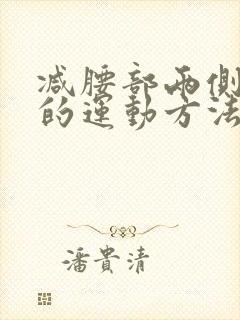 减腰部兩側
的運動方法
潘貴清